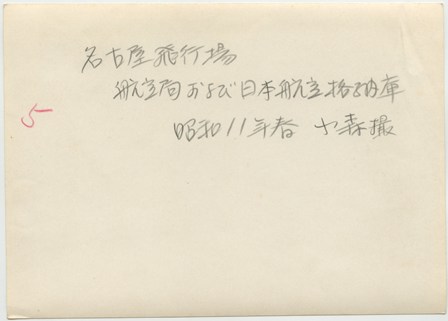 名古屋飛行場
航空局および日本航空格納庫
昭和11年春 小森撮
5